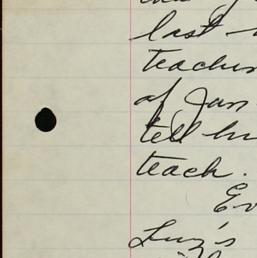 last
teachin
of Jan
tell h
teach.
Ev
Luz's